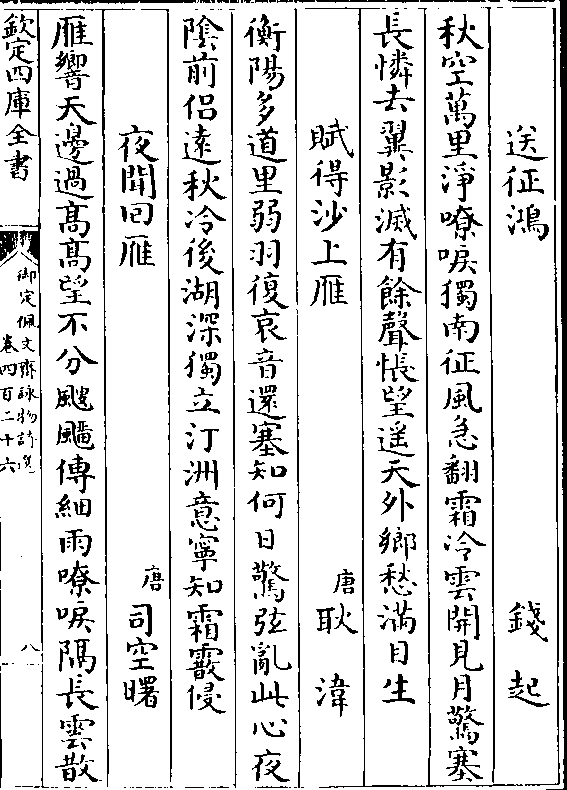 送征鴻　錢起
秋空萬里淨嘹唳獨南征風急翻霜冷雲開見月驚塞
長憐去翼影滅有餘聲悵望遥天外鄉愁滿目生
賦得沙上雁　唐　耿湋
衡陽多道里弱羽復哀音還塞知何日驚弦亂此心夜
陰前侣遠秋冷後湖深獨立汀洲意寧知霜霰侵
夜聞回雁　唐　司空曙
雁響天邊過髙髙望不分飕飗傳細雨嘹唳隔長雲散
欽定四庫全書
御定佩文齋詠物詩選
卷四百二十六
八